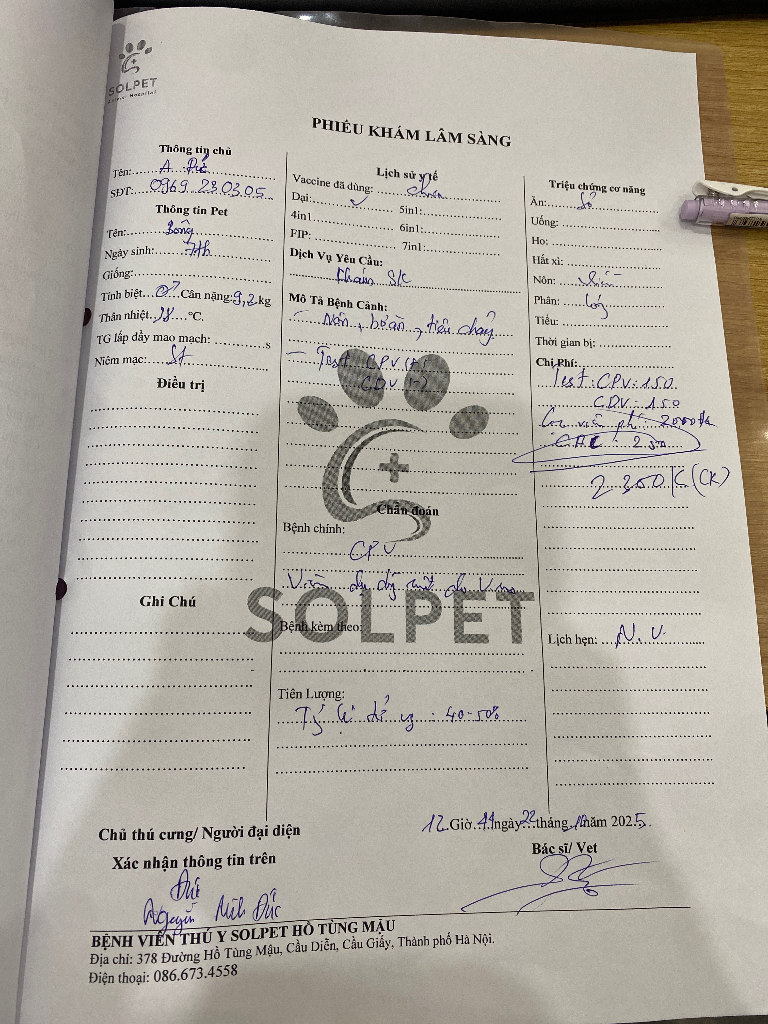 SOLPET
Animal Hospital
PHIẾU KHÁM LÂM SÀNG
Thông tin chủ
Tên: A Đức
SĐT: 0969 230305
Thông tin Pet
Tên: Bông
Ngày sinh: 7th
Giống:
Tính biệt ♂ Cân nặng: 9,2 kg
Thân nhiệt 38 °C.
TG lấp đầy mao mạch: s
Niêm mạc:
Điều trị
Ghi Chú
Lịch sử y tế
Vaccine đã dùng:
Dại: 5in1:
4in1 6in1:
FIP: 7in1:
Dịch Vụ Yêu Cầu:
Khám SK
Mô Tả Bệnh Cảnh:
- Nôn, bỏ ăn, tiêu chảy
- Test CPV (+)
CDV (-)
Chẩn đoán
Bệnh chính:
CPV
Viêm dạ dày ruột do Virus
SOLPET
Bệnh kèm theo:
Tiên Lượng:
Tỷ lệ : 40-50%
Triệu chứng cơ năng
Ăn: bỏ
Uống:
Ho:
Hắt xì:
Nôn:
Phân: lỏng
Tiểu:
Thời gian bị:
Chi Phí:
Test: CPV: 150
CDV: 150
viện phí: 2000
250
2.300K (CK)
Lịch hẹn: N.V
12 Giờ 44 ngày 22 tháng năm 2025
Chủ thú cưng/ Người đại diện
Xác nhận thông tin trên
Đức
Nguyễn Minh Đức
Bác sĩ/ Vet
BỆNH VIỆN THÚ Y SOLPET HỒ TÙNG MẬU
Địa chỉ: 378 Đường Hồ Tùng Mậu, Cầu Diễn, Cầu Giấy, Thành phố Hà Nội.
Điện thoại: 086.673.4558